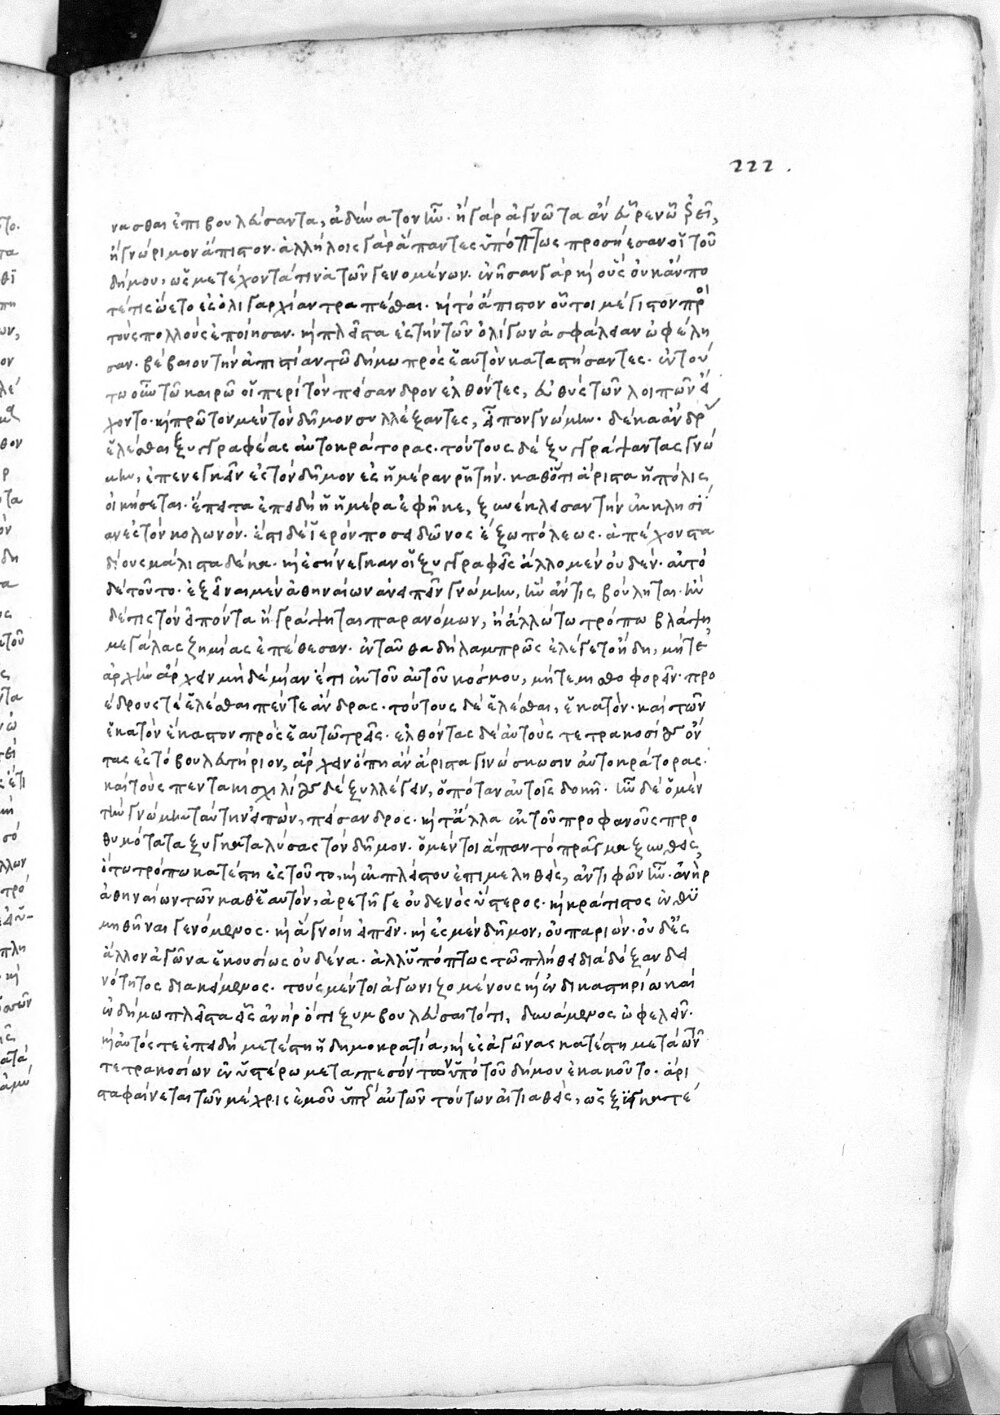 222.
νασθαι ἐπιβουλεύσαντα, ἀδύνατον ἦν. ἢ γὰρ ἀγνῶτα ἂν εὗρεν ᾧ ἐρεῖ,
ἢ γνώριμον ἄπιστον. ἀλλήλοις γὰρ ἅπαντες ὑπόπτως προσήεσαν οἱ τοῦ
δήμου, ὡς μετέχοντά τινα τῶν γενομένων. ἐνῆσαν γὰρ καὶ οὓς οὐκ ἄν πο
τέ τις ᾤετο ἐς ὀλιγαρχίαν τραπέσθαι. καὶ τὸ ἄπιστον οὗτοι μέγιστον πρὸς
τοὺς πολλοὺς ἐποίησαν. καὶ πλεῖστα ἐς τὴν τῶν ὀλίγων ἀσφάλειαν ὠφέλη
σαν. βέβαιον τὴν ἀπιστίαν τῷ δήμῳ πρὸς ἑαυτὸν καταστήσαντες. ἐν τού
τῳ οὖν τῷ καιρῷ οἱ περὶ τὸν πείσανδρον ἐλθόντες, εὐθὺς τῶν λοιπῶν εἴ
χοντο. καὶ πρῶτον μὲν τὸν δῆμον συλλέξαντες, εἶπον γνώμην. δέκα ἄνδρας
ἑλέσθαι ξυγγραφέας αὐτοκράτορας. τούτους δὲ ξυγγράψαντας γνώ
μην, ἐπενεγκεῖν ἐς τὸν δῆμον ἐς ἡμέραν ῥητήν. καθότι ἄριστα ἡ πόλις
οἰκήσεται. ἔπειτα ἐπειδὴ ἡ ἡμέρα ἐφῆκε, ξυνέκλεισαν τὴν ἐκκλησί
αν ἐς τὸν κολωνόν. ἔστι δὲ ἱερὸν ποσειδῶνος ἔξω πόλεως. ἀπέχον στα
δίους μάλιστα δέκα. καὶ ἐσήνεγκαν οἱ ξυγγραφεῖς ἄλλο μὲν οὐδέν. αὐτὸ
δὲ τοῦτο. ἐξεῖναι μὲν ἀθηναίων ἀνειπεῖν γνώμην, ἣν ἄν τις βούληται. ἢν
δέ τις τὸν εἰπόντα ἢ γράψηται παρανόμων, ἢ ἄλλῳ τῳ τρόπῳ βλάψῃ
μεγάλας ζημίας ἐπέθεσαν. ἐνταῦθα δὴ λαμπρῶς ἐλέγετο ἤδη, μήτε
ἀρχὴν ἄρχειν μηδεμίαν ἔτι ἐκ τοῦ αὐτοῦ κόσμου, μήτε μισθοφορεῖν. προ
έδρους τε ἑλέσθαι πέντε ἄνδρας. τούτους δὲ ἑλέσθαι, ἑκατόν. καὶ τῶν
ἑκατὸν ἕκαστον πρὸς ἑαυτῶ τρεῖς. ἐλθόντας δὲ αὐτοὺς τετρακοσίους ὄν
τας ἐς τὸ βουλευτήριον, ἄρχειν ὅπη ἂν ἄριστα γινώσκωσιν αὐτοκράτορας.
καὶ τοὺς πεντακισχιλίους δὲ ξυλλέγειν, ὁπόταν αὐτοῖς δοκῇ. ἦν δὲ ὁ μὲν
τὴν γνώμην ταύτην εἰπών, πείσανδρος. καὶ τἆλλα ἐκ τοῦ προφανοῦς προ
θυμότατα ξυγκαταλύσας τὸν δῆμον. ὁ μέντοι ἅπαν τὸ πρᾶγμα ξυνθεὶς
ὅτῳ τρόπῳ κατέστη ἐς τοῦτο, καὶ ἐκ πλείστου ἐπιμεληθείς, ἀντιφῶν ἦν. ἀνὴρ
ἀθηναίων τῶν καθ' ἑαυτὸν, ἀρετῇ γε οὐδενὸς ὕστερος. καὶ κράτιστος ἐνθυ
μηθῆναι γενόμενος. καὶ ἃ γνοίη εἰπεῖν. καὶ ἐς μὲν δῆμον, οὐ παριὼν. οὐδ' εἰς
ἄλλον ἀγῶνα ἑκουσίως οὐδένα. ἀλλ' ὑπόπτως τῷ πλήθει διὰ δόξαν δει
νότητος διακείμενος. τοὺς μέντοι ἀγωνιζομένους καὶ ἐν δικαστηρίῳ καὶ
ἐν δήμῳ πλεῖστα εἷς ἀνήρ ὅστις ξυμβουλεύσαιτό τι, δυνάμενος ὠφελεῖν.
καὶ αὐτός τε ἐπειδὴ μετέστη ἡ δημοκρατία, καὶ ἐς ἀγῶνας κατέστη μετὰ τῶν
τετρακοσίων ἐν ὑστέρῳ μεταπεσόντα ὑπὸ τοῦ δήμου ἐκακοῦτο. ἄρι
στα φαίνεται τῶν μέχρις ἐμοῦ ὑπὲρ αὐτῶν τούτων αἰτιαθεὶς, ὡς ξυγκατέ